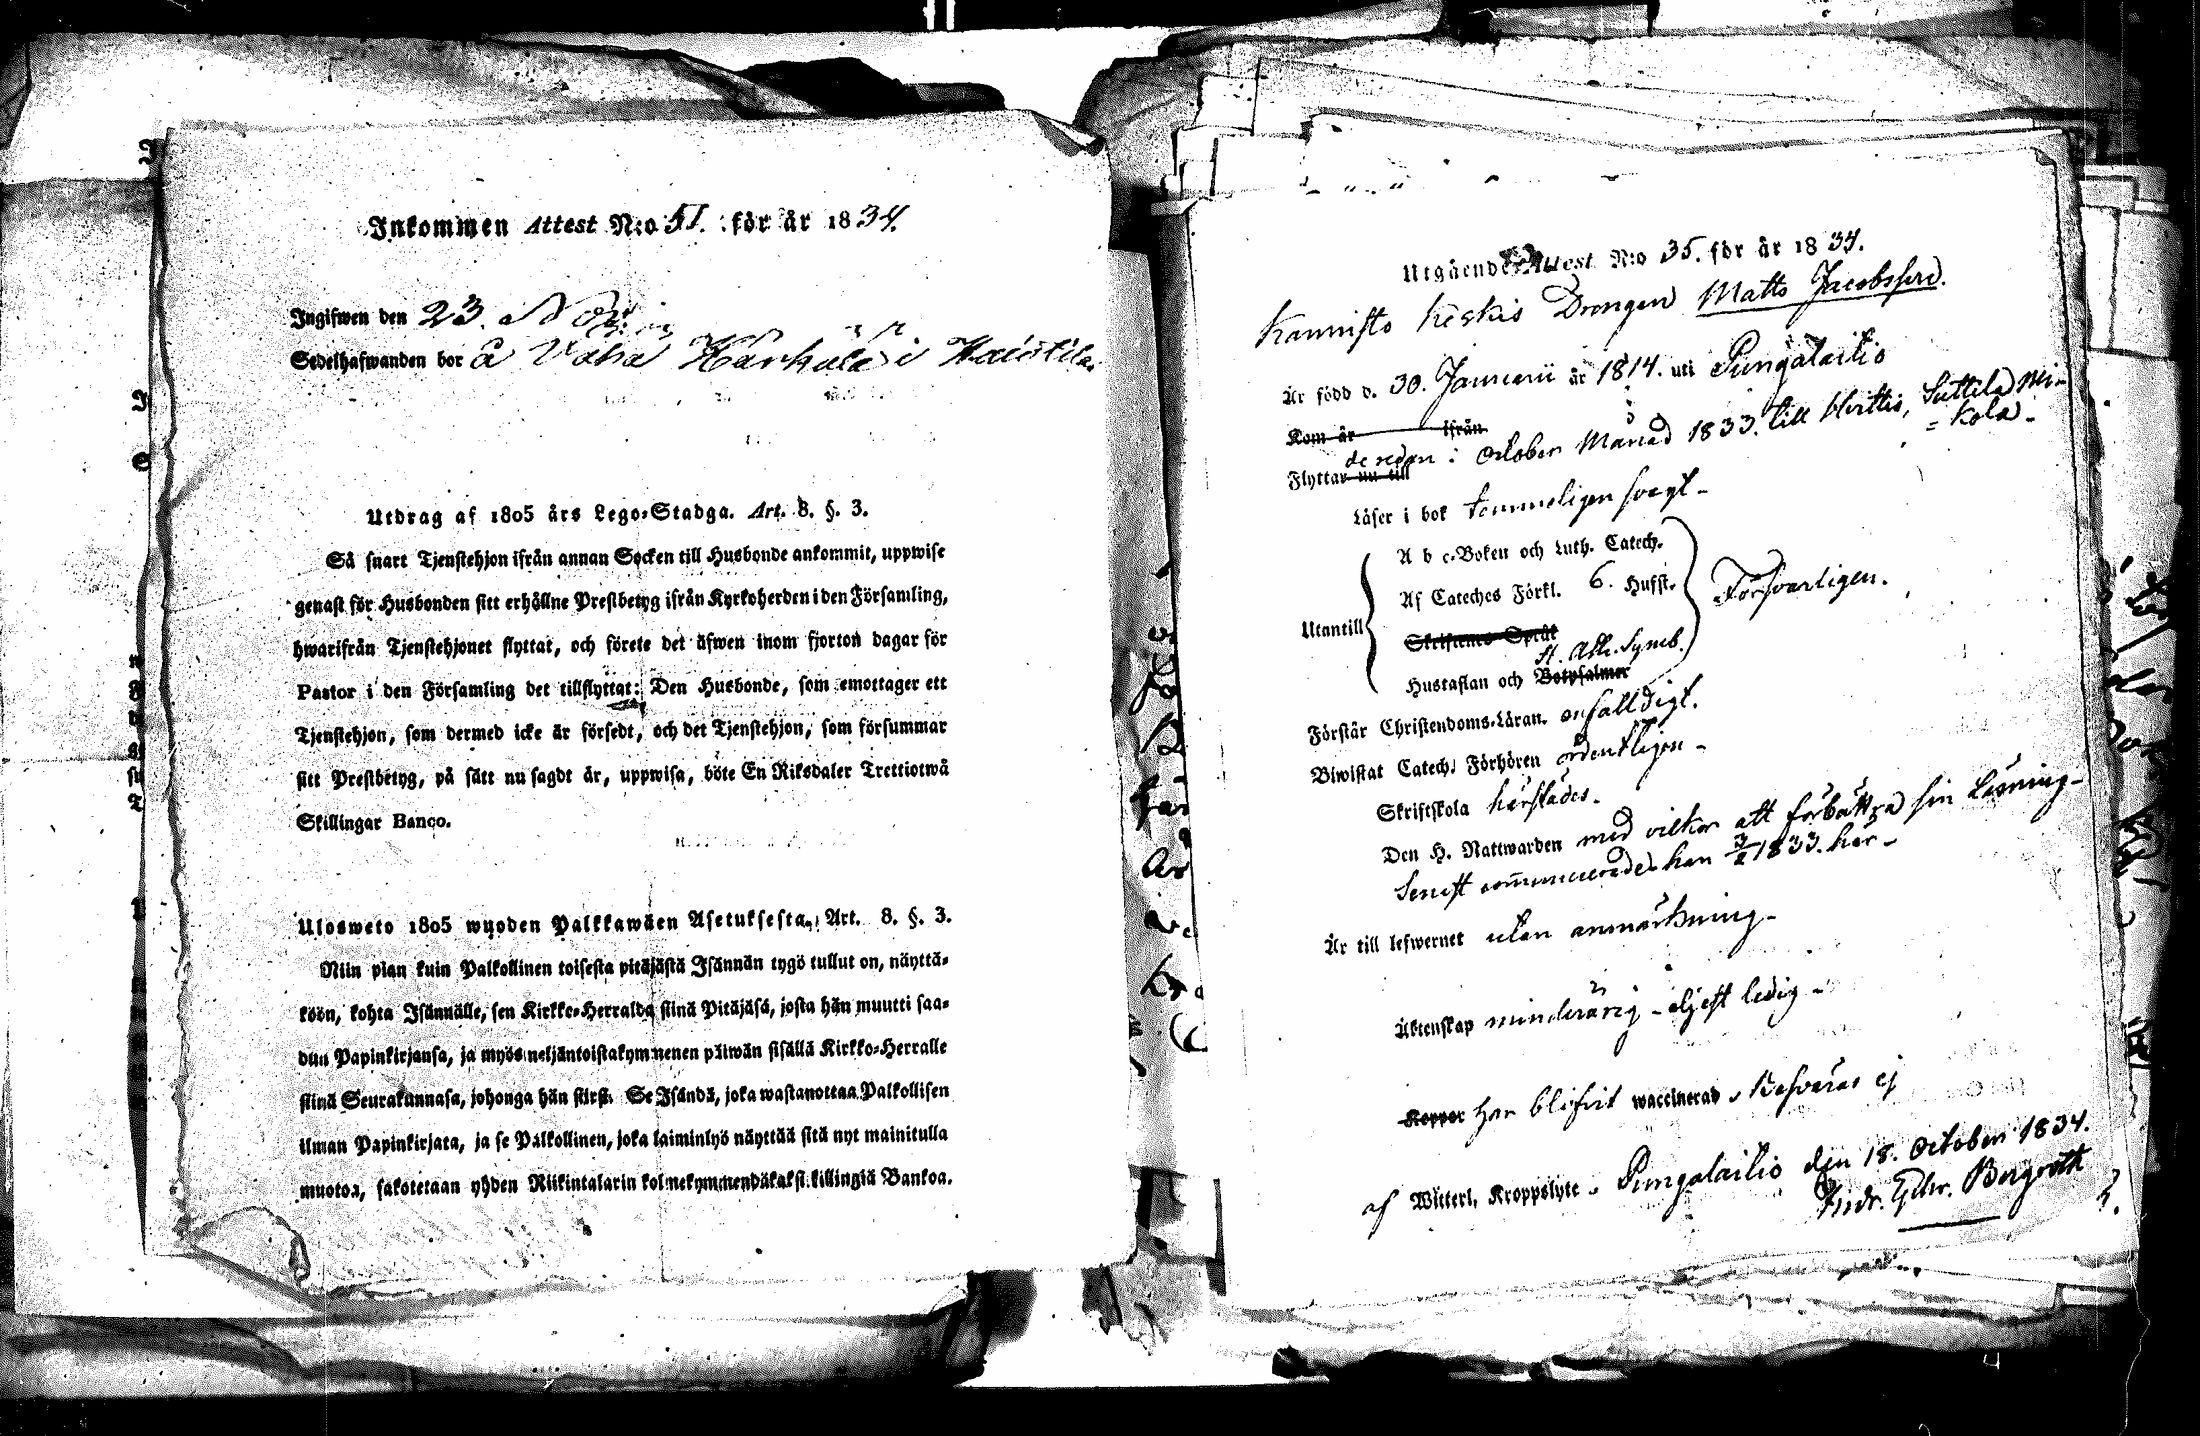 Inkommen Attest N:o 51. för år 1834.
Ingifwen den 23. Nov:
Sedelhafwanden bor å Vaha Härkälä i Haistila.
Utdrag af 1805 års Lego-Stadga. Art. 8. §. 3.
Så snart Tjenstehjon ifrån annan Socken till Husbonde ankommit, uppwise
genast för Husbonden sitt erhållne Prestbetyg ifrån Kyrkoherden i den Församling,
hwarifrån Tjenstehjonet flyttat, och förete det äfwen inom fjorton dagar för
Pastor i den Församling det tillflyttat: Den Husbonde, som emottager ett
Tjenstehjon, som dermed icke är försedt, och det Tjenstehjon, som försummar
sitt Prestbetyg, på sätt nu sagdt är, uppwisa, böte En Riksdaler Trettiotwå
Skillingar Banco.
Ulosweto 1805 wuoden Palkkawäen Asetuksesta. Art. 8. §. 3.
Niin pian kuin Palkollinen toisesta pitäjästä Isännän tygö tullut on, näyttä-
köön, kohta Isännälle, sen Kirkko-Herralda siinä Pitäjäsä, josta hän muutti saa-
dun Papinkirjansa, ja myös neljäntoistakymmenen päiwän sisällä Kirkko-Herralle
siinä Seurakunnasa, johonga hän siirsi. Se Isändä, joka wastanottaa Palkollisen
ilman Papinkirjata, ja se Palkollinen, joka laiminlyö näyttää sitä nyt mainitulla
muotoa, sakotetaan yhden Riikintalarin kolmekymmendäkaksi killingiä Bankoa.
Utgående Attest N:o 35. för år 1834.
Kannisto Keskis Drengen Matts Jacobsson.
Är född d. 30. Januarii år 1814. uti Pungalaitio
Kom år ifrån
Flyttar nu till
de redan i October Månad 1833. till Kerttis, Suttila Mi-
=kola.
Läser i bok temmeligen svagt.
Utantill
A b c-Boken och Luth. Catech.
Af Cateches Förkl. 6. Hufst.
Skriftenes Språk
St. Ath. Symb.
Hustaflan och Botpsalmer
Försvarligen.
Förstår Christendoms-Läran. enfalldigt.
Biwistat Catech. Förhören ordentligen
Skriftskola härstädes.
Den H. Nattwarden med vilkor att förbättra sin Läsning.
Senast communicerade han 3/2 1833. här
Är till lefwernet utan anmärkning
Äktenskap minderårig - eljest ledig
Koppor har blifvit waccinerad, Besväras ej
af Witterl. Kroppslyte. Pungalaitio den 18. October 1834.
Andr. Gthr. Bergroth